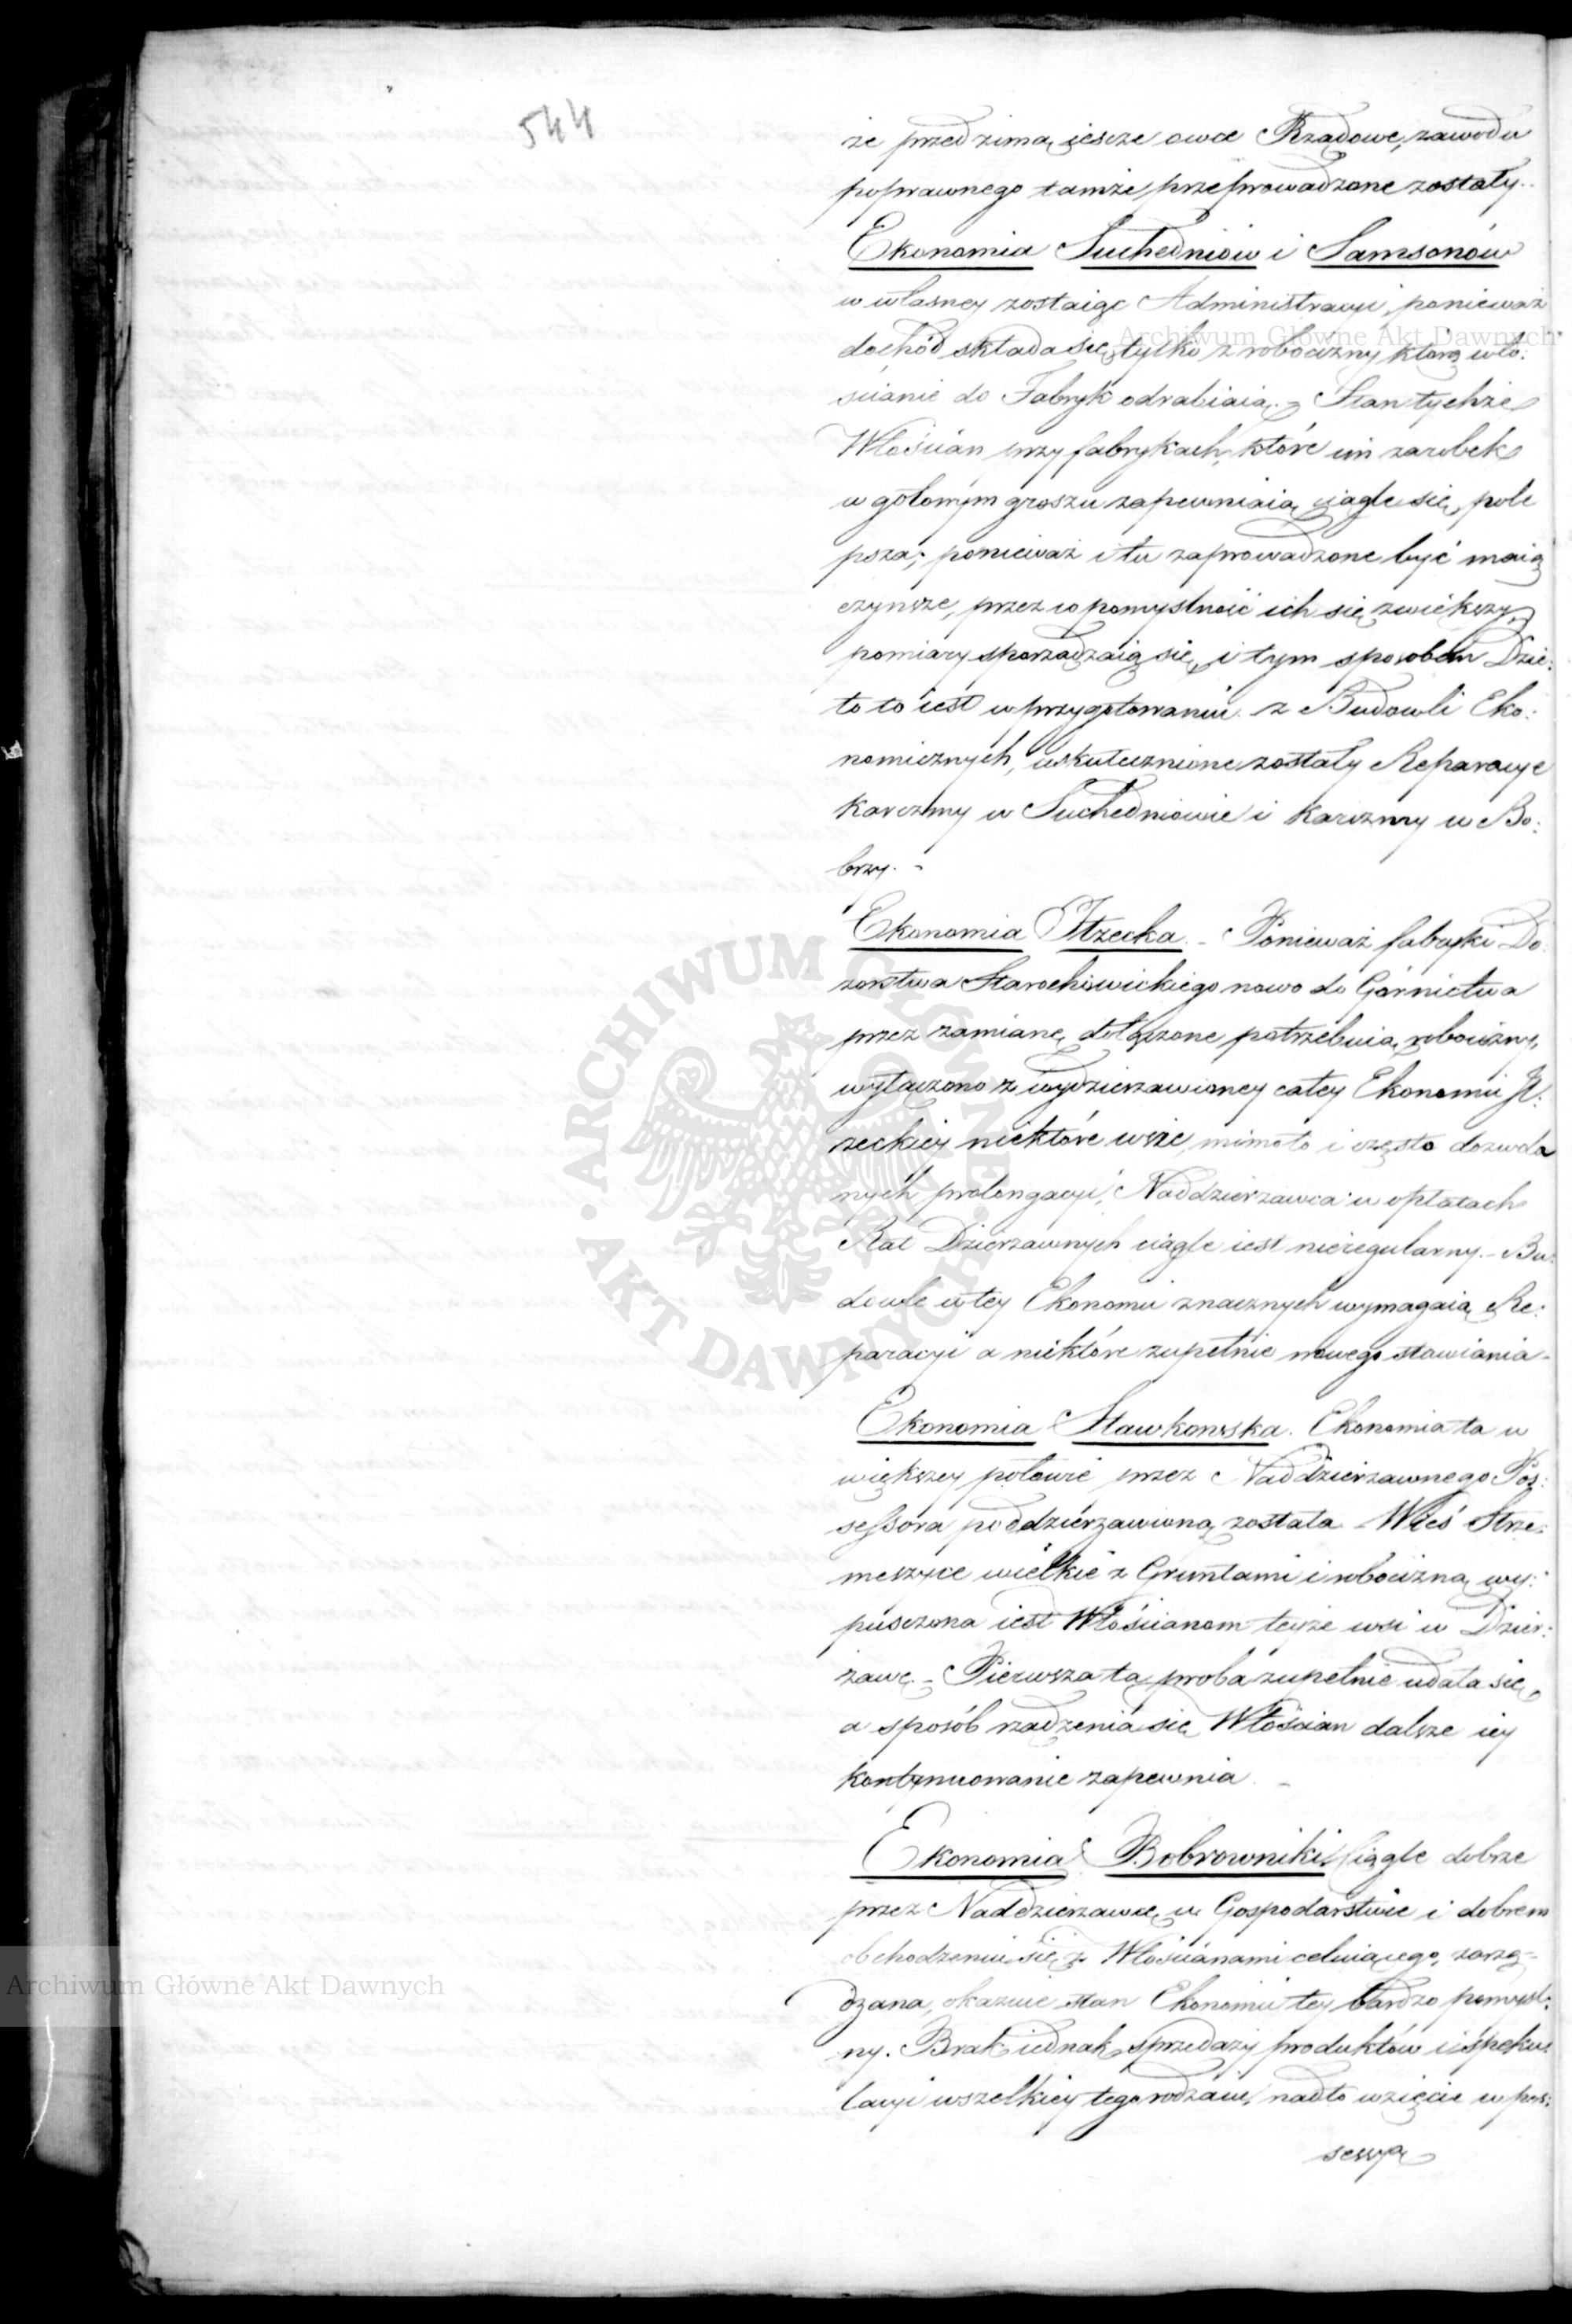 544
że przed zimą iescze owce Rządowe, zawodu
poprawnego tamże przeprowadzone zostały.
Ekonomia Suchedniów i Samsonów
w własney zostaiąc Administracyi, ponieważ
dochód składa się tylko z robocizny którą wło:
scianie do Fabryk odrabiaią. Stan tychże
Włościan przy fabrykach, które im zarobek
w gotowym groszu zapewniaią ciągle się pole
psza; ponieważ i tu zaprowadzone być maią
czynsze, przez co pomyslność ich się zwiększy,
pomiary sporządzaią się, i tym sposobem Dzie:
ło to iest w przygotowaniu. z Budowli Eko:
nomicznych, uskutecznione zostały Reparacye
karczmy w Suchedniowie i karczmy w Bo:
brzy. -
Ekonomia Iłżecka. - Ponieważ fabryki Do:
zorstwa Starachowickiego nowo do Górnictwa
przez zamianę dołączone potrzebuią robocizny,
wyłączono z wydzierzawioney całey Ekonomii Ił:
żeckiey niektóre wsie, mimo to i często dozwolo
nych prolongacyi, Naddzierzawca w opłatach
Rat Dzierzawnych ciągle iest nieregularny. - Bu:
dowle w tey Ekonomii znacznych wymagaią Re:
paracyi a niektóre zupełnie nowego stawiania -
Ekonomia Sławkowska. Ekonomia ta w
większey połowie przez Naddzierzawnego Pos:
sessora poddzierzawioną została - Wieś Strze:
meszyce wielkie z Gruntami i robocizną wy:
pusczona iest Włościanom teyże wsi w Dzier:
żawę. - Pierwsza ta proba zupełnie udała się,
a sposób rządzenia się Włościan dalsze iey
kontynuowanie zapewnia. -
Ekonomia Bobrowniki. Ciągle dobrze
przez Naddzierzawcę w Gospodarstwie i dobrem
obchodzeniu się z Włościanami celuiącego, zarzą-
dzana, okazuie stan Ekonomii tey bardzo pomysl:
ny. Brak iednak sprzedaży produktów i speku:
lacyi wszelkiey tego rodzaiu, nadto wzięcie w pos:
sessyą
Archiwum Główne Akt Dawnych
ARCHIWUM GŁÓWNE · AKT DAWNYCH ·
Archiwum Główne Akt Dawnych